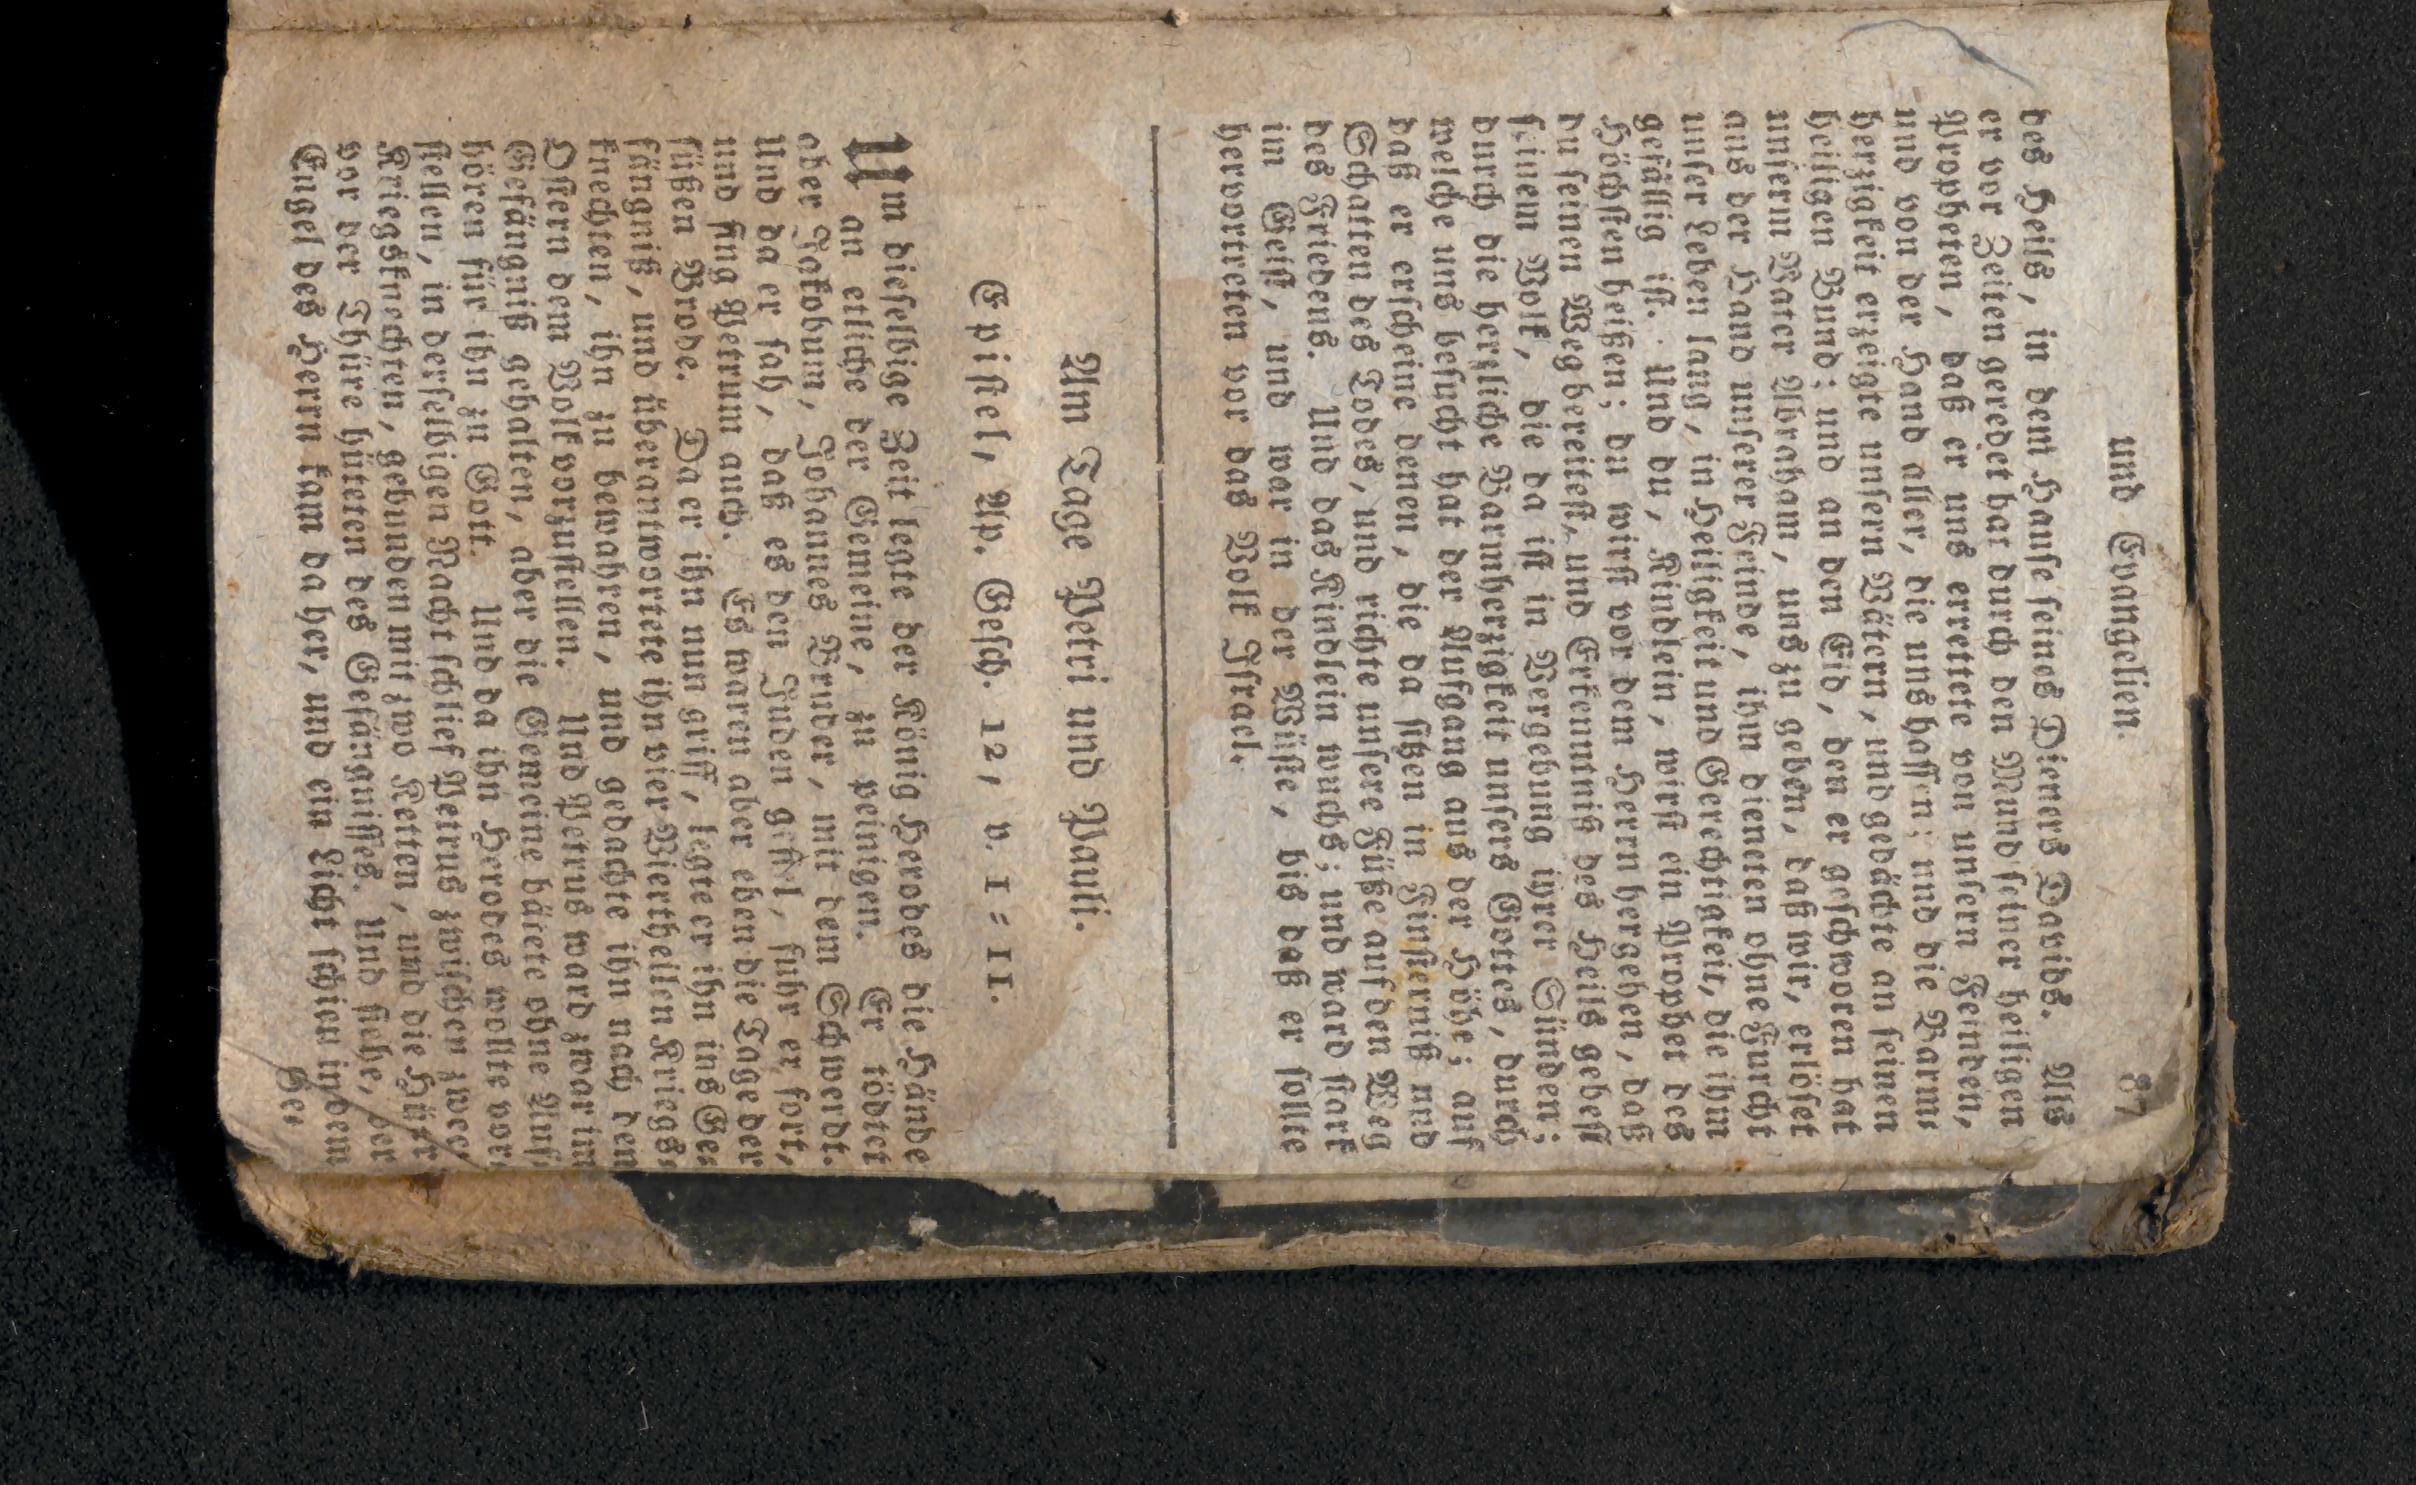 und Evangelien. 87
des Heils, in dem Hause seines Dieners Davids. Als
er vor Zeiten geredet hat durch den Mund seiner heiligen
Propheten, daß er uns errettete von unsern Feinden,
und von der Hand aller, die uns hassen; und die Barm-
herzigkeit erzeigte unsern Vätern, und gedächte an seinen
heiligen Bund; und an den Eid, den er geschworen hat
unserm Vater Abraham, uns zu geben, daß wir, erlöset
aus der Hand unserer Feinde, ihm dieneten ohne Furcht
unser Leben lang, in Heiligkeit und Gerechtigkeit, die ihm
gefällig ist. Und du, Kindlein, wirst ein Prophet des
Höchsten heißen; du wirst vor dem Herrn hergehen, daß
du seinen Weg bereitest, und Erkenntniß des Heils gebest
seinem Volk, die da ist in Vergebung ihrer Sünden;
durch die herzliche Barmherzigkeit unsers Gottes, durch
welche uns besucht hat der Aufgang aus der Höhe; auf
daß er erscheine denen, die da sitzen in Finsterniß und
Schatten des Todes, und richte unsere Füße auf den Weg
des Friedens. Und das Kindlein wuchs; und ward stark
im Geist, und war in der Wüste, bis daß er sollte
hervortreten vor das Volk Israel.
Am Tage Petri und Pauli.
Epistel, Ap. Gesch. 12, v. 1-11.
Um dieselbige Zeit legte der König Herodes die Hände
an etliche der Gemeine, zu peinigen. Er tödtet
aber Jakobum, Johannes Bruder, mit dem Schwerdt.
Und da er sah, daß es den Juden gefiel, fuhr er fort,
und fing Petrum auch. Es waren aber eben die Tage der
süßen Brode. Da er ihn nun griff, legte er ihn ins Ge-
fängniß, und überantwortete ihn vier Viertheilen Kriegs-
knechten, ihn zu bewahren, und gedachte ihn nach den
Ostern dem Volk vorzustellen. Und Petrus ward zwar im
Gefängniß gehalten, aber die Gemeine bäete ohne Auf-
hören für ihn zu Gott. Und da ihn Herodes wollte vor-
stellen, in derselbigen Nacht schlief Petrus zwischen zween
Kriegsknechten, gebunden mit zwo Ketten, und die Hüter
vor der Thüre hüteten des Gefängnisses. Und siehe, der
Engel des Herrn kam daher, und ein Licht schien in dem
Ge-